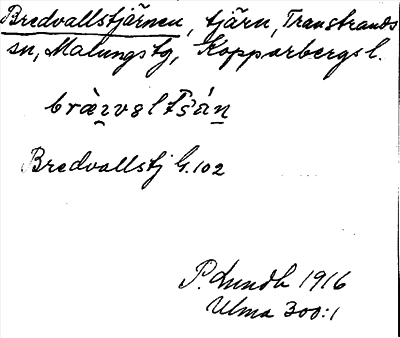 Bredvallstjärnen, tjärn, Transtrands
sn, Malungs tg, Kopparbergs l.
Bredvallstj G. 102
P. Lundh 1916
Ulma 300:1